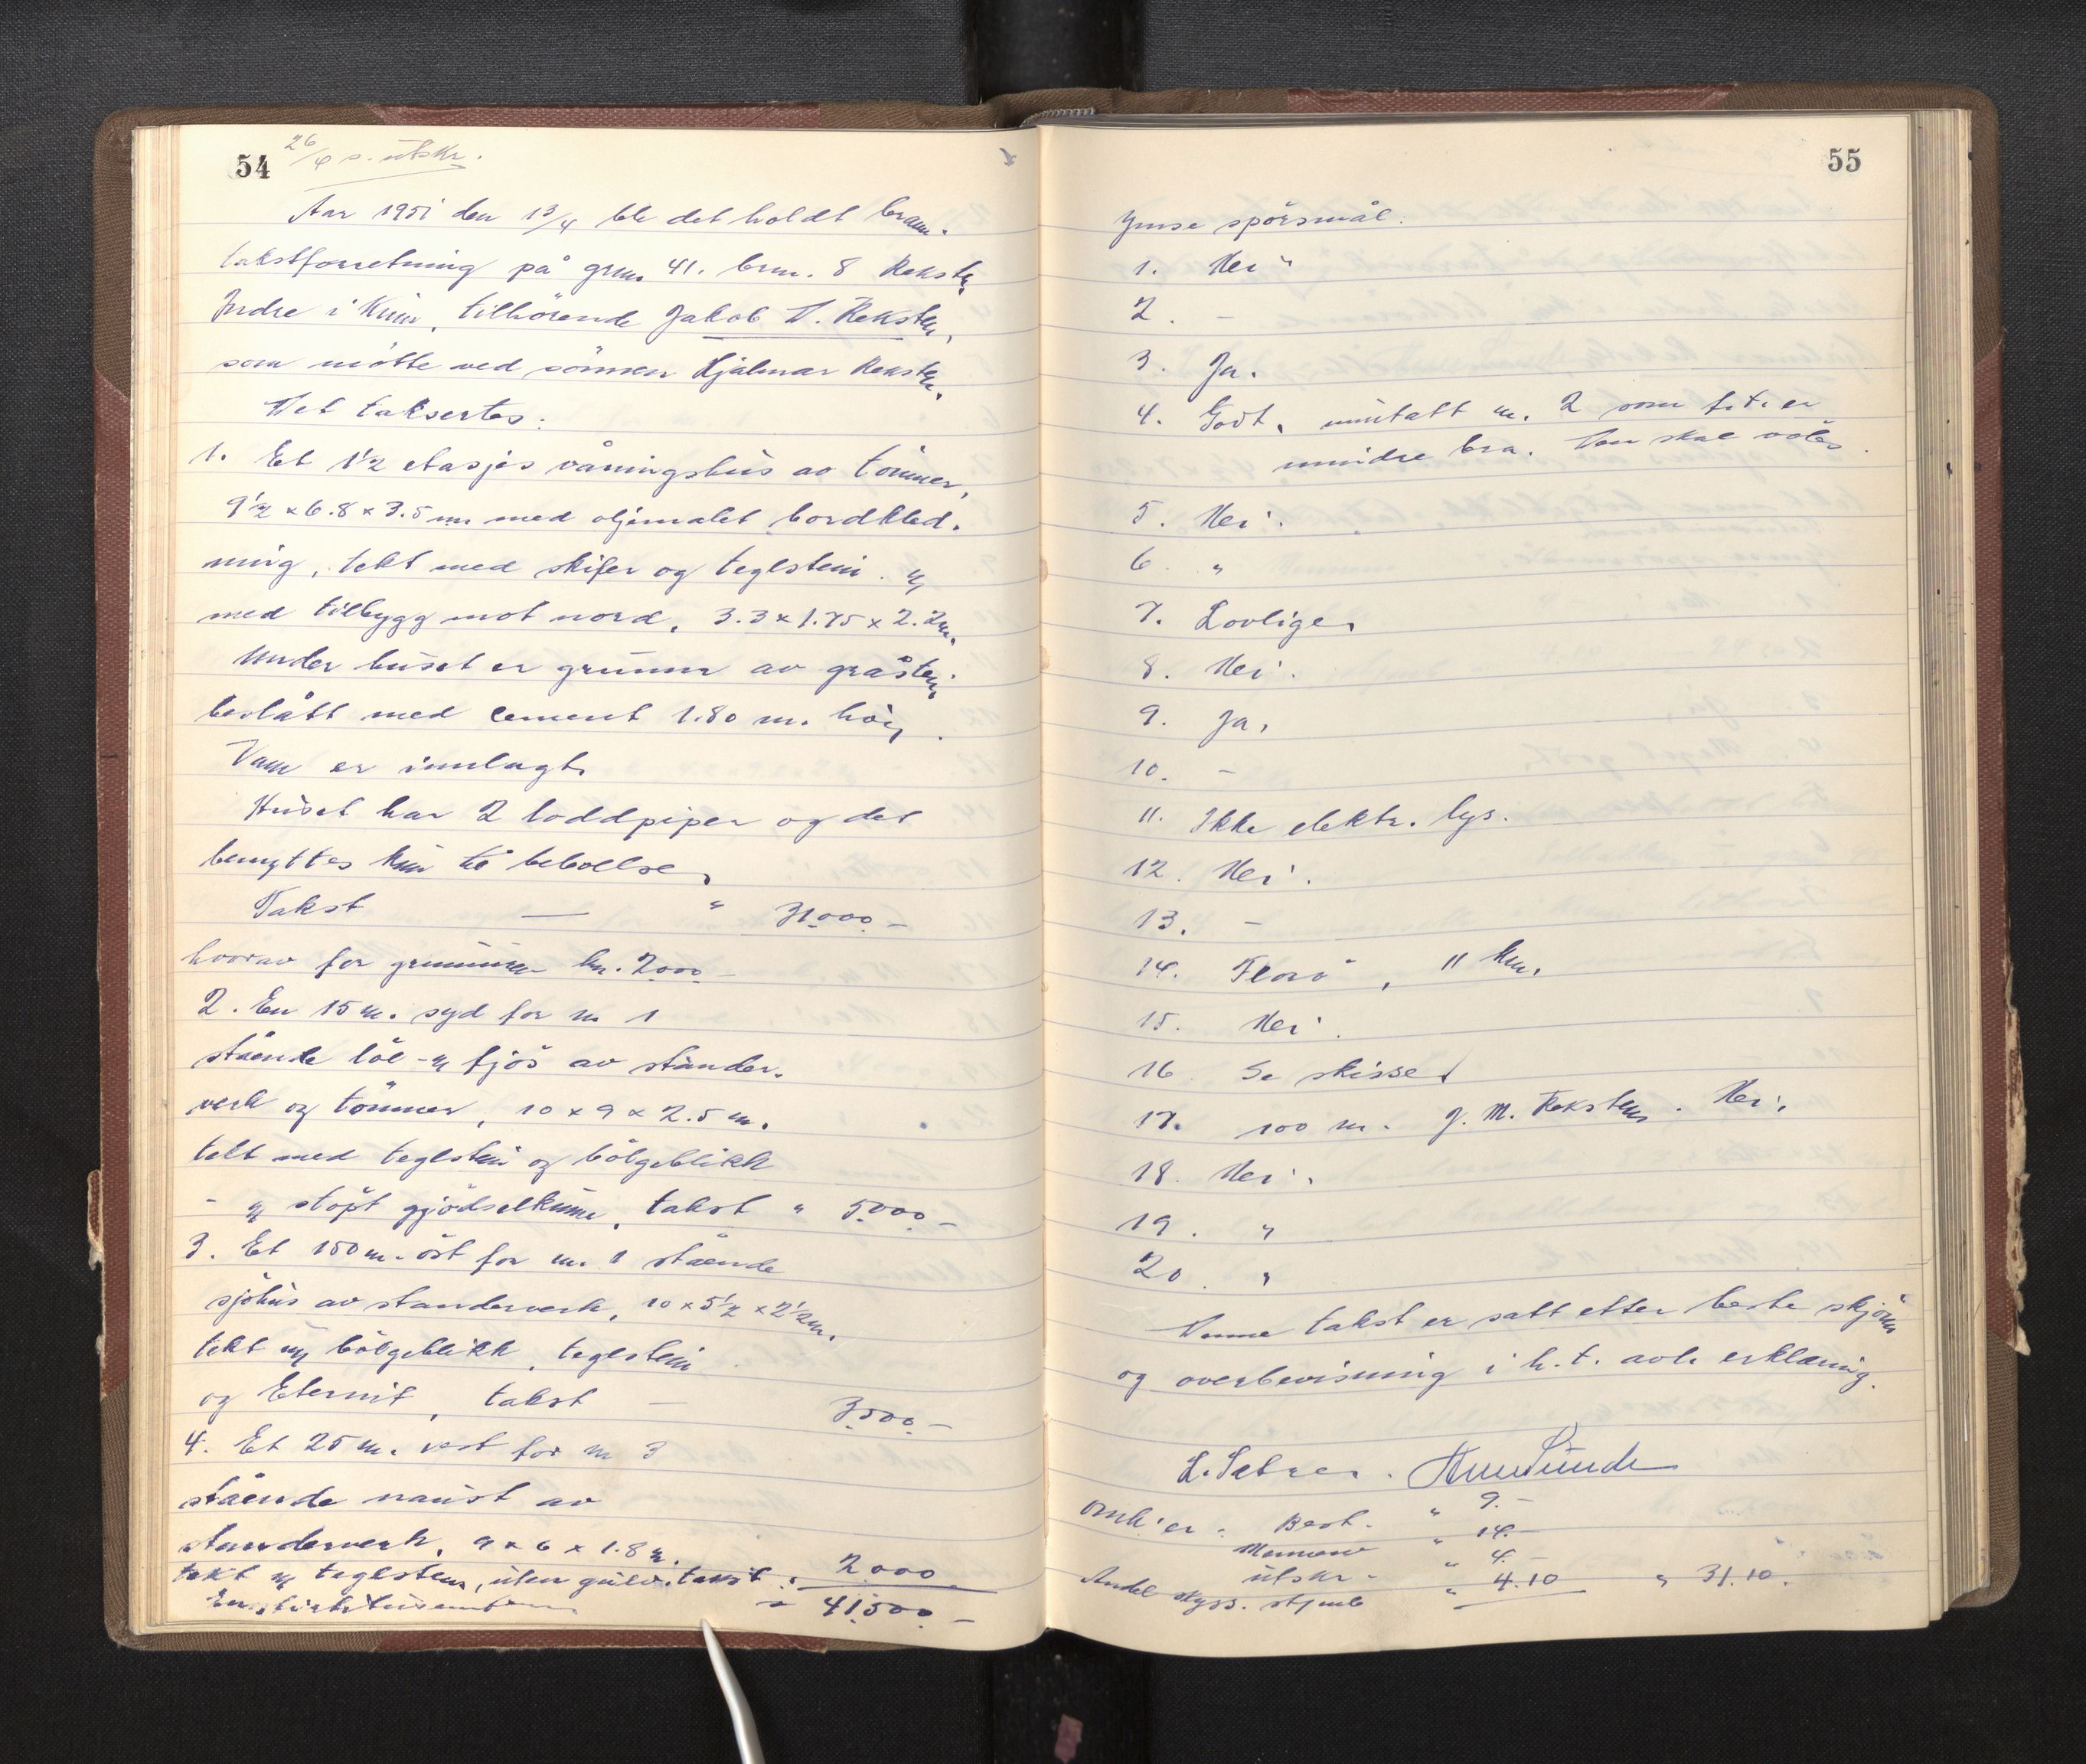 54
26/4 s. utskr.
Aar 1951 den 13/4 ble det holdt brann-
takstforretning på grnr. 41. brnr. 8 Reksta
Indre i Kinn, tilhörende Jakob A. Reksten,
som mötte ved sönnen Hjalmar Reksten.
Det taksertes:
1. Et 1 1/2 etasjes våningshus av tömmer,
9 1/2 x 6.8 x 3.5 m med oljemalet bordkled-
ning, tekt med skifer og teglstein. og
med tilbygg mot nord, 3.3 x 1.75 x 2.2 m.
Under huset er grunnmur av gråstein
beslått med cement 1.80 m. höy.
Vann er innlagt.
Huset har 2 loddpiper og det
benyttes kun til beboelse.
Takst — " 31000 -
hvorav for grunnmuren kr. 2000 -
2. En 15 m. syd for nr 1
stående löe- og fjös av stander-
verk og tömmer, 10 x 9 x 2.5 m.
tekt med teglstein og bölgeblikk
- og stöpt gjödselkum, takst " 5000 -
3. Et 150 m. öst for nr. 1 stående
sjöhus av standerverk, 10 x 5 1/2 x 2 1/2 m.
tekt m/ bölgeblikk, teglstein
og Eternit, takst — 3500 -
4. Et 25 m. vest for nr 3
stående naust av
standerverk, 9 x 6 x 1.8 m.
tekt m/ teglstein, uten gulv. takst " 2000
" 41500 -
55
Ymse spörsmål.
1. Nei "
2. -
3. Ja.
4. Godt, unntatt nr. 2 som f.t. er
mindre bra. Den skal völes.
5. Nei.
6. "
7. Lovlige.
8. Nei.
9. Ja.
10. -
11. Ikke elektr. lys.
12. Nei.
13. -
14. Florö, 11 km.
15. Nei.
16 Se skisse.
17. 100 m. J. M. Reksten. Nei.
18. Nei.
19. "
20. "
Denne takst er satt etter beste skjönn
og overbevisning i h.t. avl. erklæring.
L. Sætren.
Omk'er: Best. " 9.-
" 14.-
utskr. " 4.-
Andel skyss. " 4.10 " 31.10.